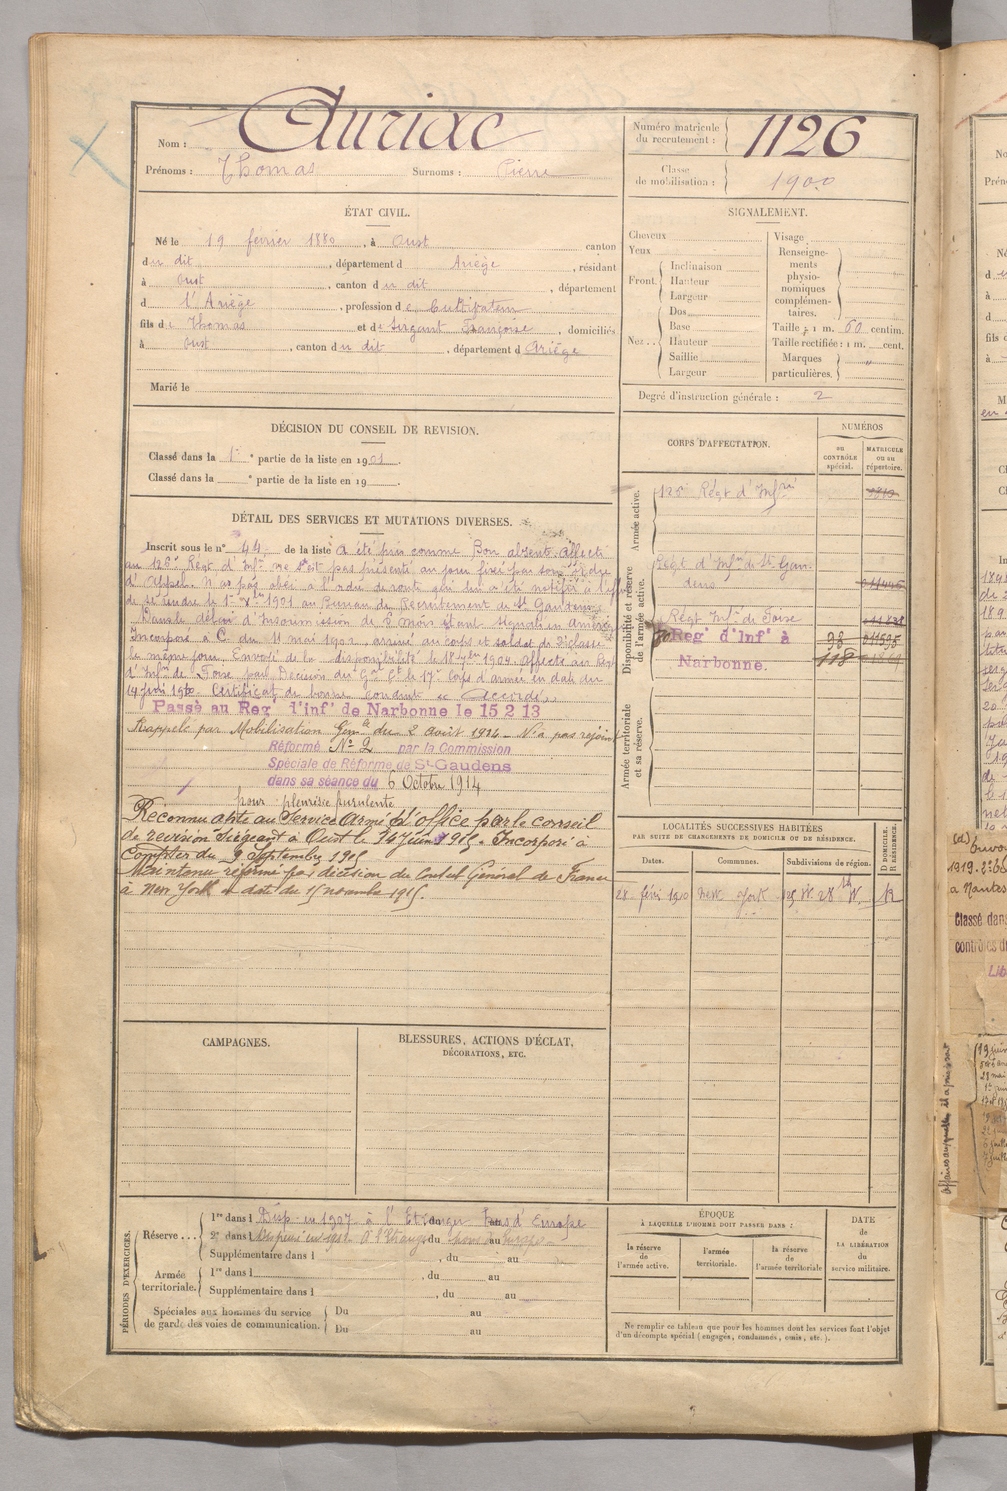 Nom : Auriac
Prénoms : Thomas Surnoms : Pierre
Numéro matricule du recrutement : 1126
Classe de mobilisation : 1900
ÉTAT CIVIL.
Né le 19 février 1880, à Oust canton
du dit, département d Ariège, résidant
à Oust, canton du dit, département
d l'Ariège, profession de Cultivateur
fils de Thomas et de Sirgant Françoise, domiciliés
à Oust, canton du dit, département d Ariège
Marié le
SIGNALEMENT.
Cheveux
Yeux
Front. Inclinaison
Hauteur
Largeur
Nez.. Dos
Base
Hauteur
Saillie
Largeur
Visage
Renseigne-
ments
physio-
nomiques
complémen-
taires.
Taille : 1 m. 60 centim.
Taille rectifiée : 1 m. cent.
Marques particulières. "
Degré d'instruction générale : 2
DÉCISION DU CONSEIL DE REVISION.
Classé dans la 1re partie de la liste en 1901.
Classé dans la e partie de la liste en 19
CORPS D'AFFECTATION.
NUMÉROS
au
CONTRÔLE
spécial.
MATRICULE
ou au
répertoire.
Armée active.
126e Régt d'Infrie
Disponibilité et réserve
de l'armée active.
Régt d'Infie de St Gau-
dens
Régt Infie de Foix
Reg' d'Inf' à
Narbonne.
Armée territoriale
et sa réserve.
DÉTAIL DES SERVICES ET MUTATIONS DIVERSES.
Inscrit sous le n° 44 de la liste A été pris comme Bon absent. Affecté
au 126e Régt d'Infie ne s'est pas présenté au jour fixé par son ordre
d'appel. N'a pas obéi à l'ordre de route qui lui a été notifié à l'effet
de se rendre le 1er 1901 au Bureau de Recrutement de St Gaudens
Dans le délai d'Insoumission de 6 mois étant signalé en Amérique
Incorporé à C. du 11 mai 1902. arrivé au corps et soldat de 2e classe
le même jour. Envoyé dans la disponibilité le 18 1904. Affecté au Régt
d'Infie de Foix par Décision du Gal Ct le 17e Corps d'armée en date du
14 juin 1910. Certificat de bonne conduite "Accordé"
Passé au Reg' d'inf' de Narbonne le 15 2 13
Rappelé par Mobilisation Génale du 2 août 1914. N'a pas rejoint
Réformé N° 2 par la Commission
Spéciale de Réforme de St-Gaudens
dans sa séance du 6 Octobre 1914
pour pleurésie purulente
Reconnu apte au Service Armé d'office par le conseil
de revision siégeant à Oust le 14 juin 1915. Incorporé à
Compter du 9 Septembre 1915
Maintenu réformé par décision du Consul Général de France
à New York en date du 15 novembre 1915.
LOCALITÉS SUCCESSIVES HABITÉES
PAR SUITE DE CHANGEMENTS DE DOMICILE OU DE RÉSIDENCE.
Dates. Communes. Subdivisions de région. D DOMICILE. R RÉSIDENCE.
28 févr 1910 New York 125 W. 28th W. R
CAMPAGNES.
BLESSURES, ACTIONS D'ÉCLAT,
DÉCORATIONS, ETC.
PÉRIODES D'EXERCICES.
Réserve... 1re dans l Disp. en 1907 à l'Etranger hors d'Europe
2e dans l à l'Etranger hors d'Europe
Supplémentaire dans l , du au
Armée territoriale. 1re dans l , du au
Supplémentaire dans l , du au
Spéciales aux hommes du service
de garde des voies de communication. Du au
Du au
ÉPOQUE
À LAQUELLE L'HOMME DOIT PASSER DANS :
la réserve
de
l'armée active.
l'armée
territoriale.
la réserve
de
l'armée territoriale
DATE
de
LA LIBÉRATION
du
service militaire.
Ne remplir ce tableau que pour les hommes dont les services font l'objet
d'un décompte spécial (engagés, condamnés, omis, etc.).